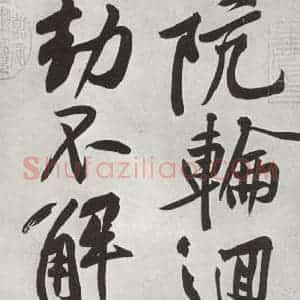 阬輪迴
劫不解
Shufaziliao.COM